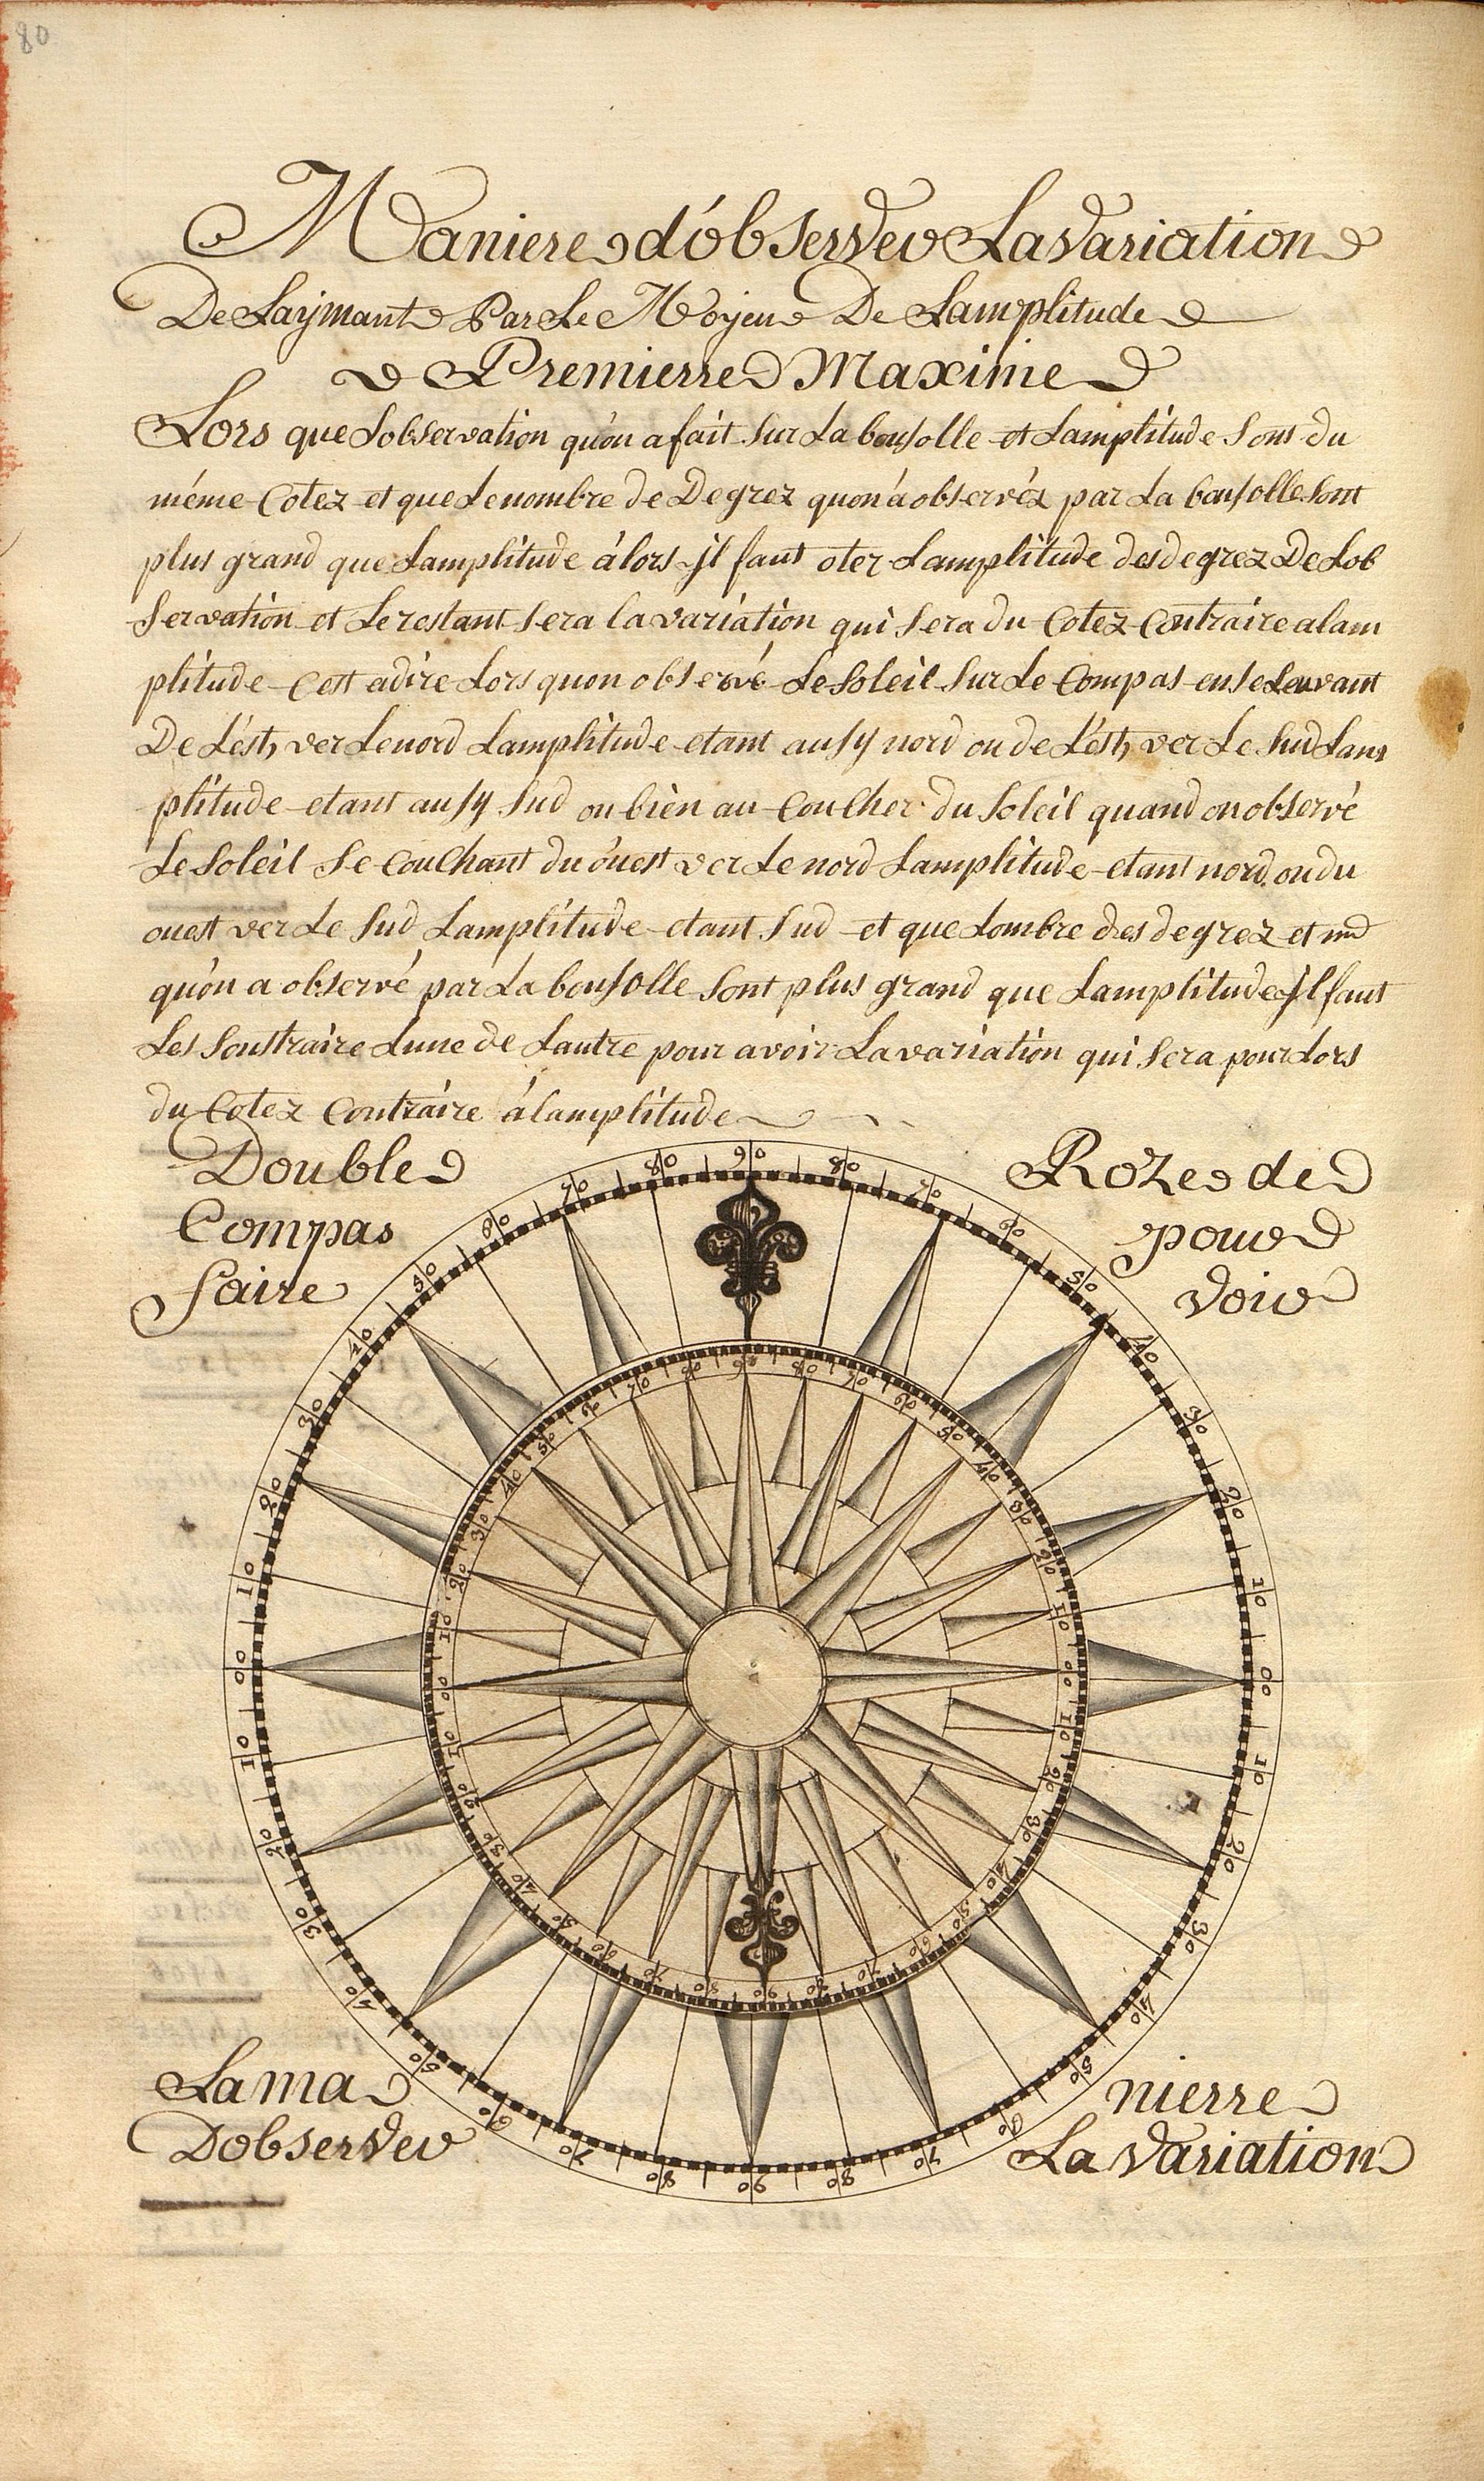 80
Maniere d'observer La Variation
De Laymant Par Le Moyen De Lamplitude
Premierre Maxime
Lors que Lobservation qu'on a fait Sur La bousolle et Lamplitude Sont du
méme Cotez et que Le nombre de Degrez quon'a observéz par La bousolle Sont
plus grand que Lamplitude álors jl faut oter Lamplitude des degrez De Lob
Servation et Le restant Sera la variation qui Sera du Cotez Contraire a lam
plitude C'est adire Lors quon observé Le Soleil Sur Le Compas en se Levant
De L'est, ver Le nord Lamplitude etant aussy nord ou de L'est, ver Le Sud Lam
plitude etant aussy Sud ou bien au Coucher du Soleil quand on observé
Le Soleil Se Couchant du ouest ver Le nord Lamplitude etant nord ou du
ouest ver Le Sud Lamplitude etant Sud et que Lombre des degrez et
qu'on a observé par La bousolle Sont plus grand que Lamplitude jl faut
Les Soustraire Lune de Lautre pour avoir La variation qui Sera pour Lors
du Cotez Contraire á lamplitude
Double Roze de
Compas pour
faire voir
90
80 80
70 70
60 60
50 50
40 40
30 30
20 20
10 10
00 00
10 10
20 20
30 30
40 40
50 50
60 60
70 70
80 80
90
90
80 80
70 70
60 60
50 50
40 40
30 30
20 20
10 10
00 00
10 10
20 20
30 30
40 40
50 50
60 60
70 70
80 80
90
La ma nierre
Dobserver La Variation